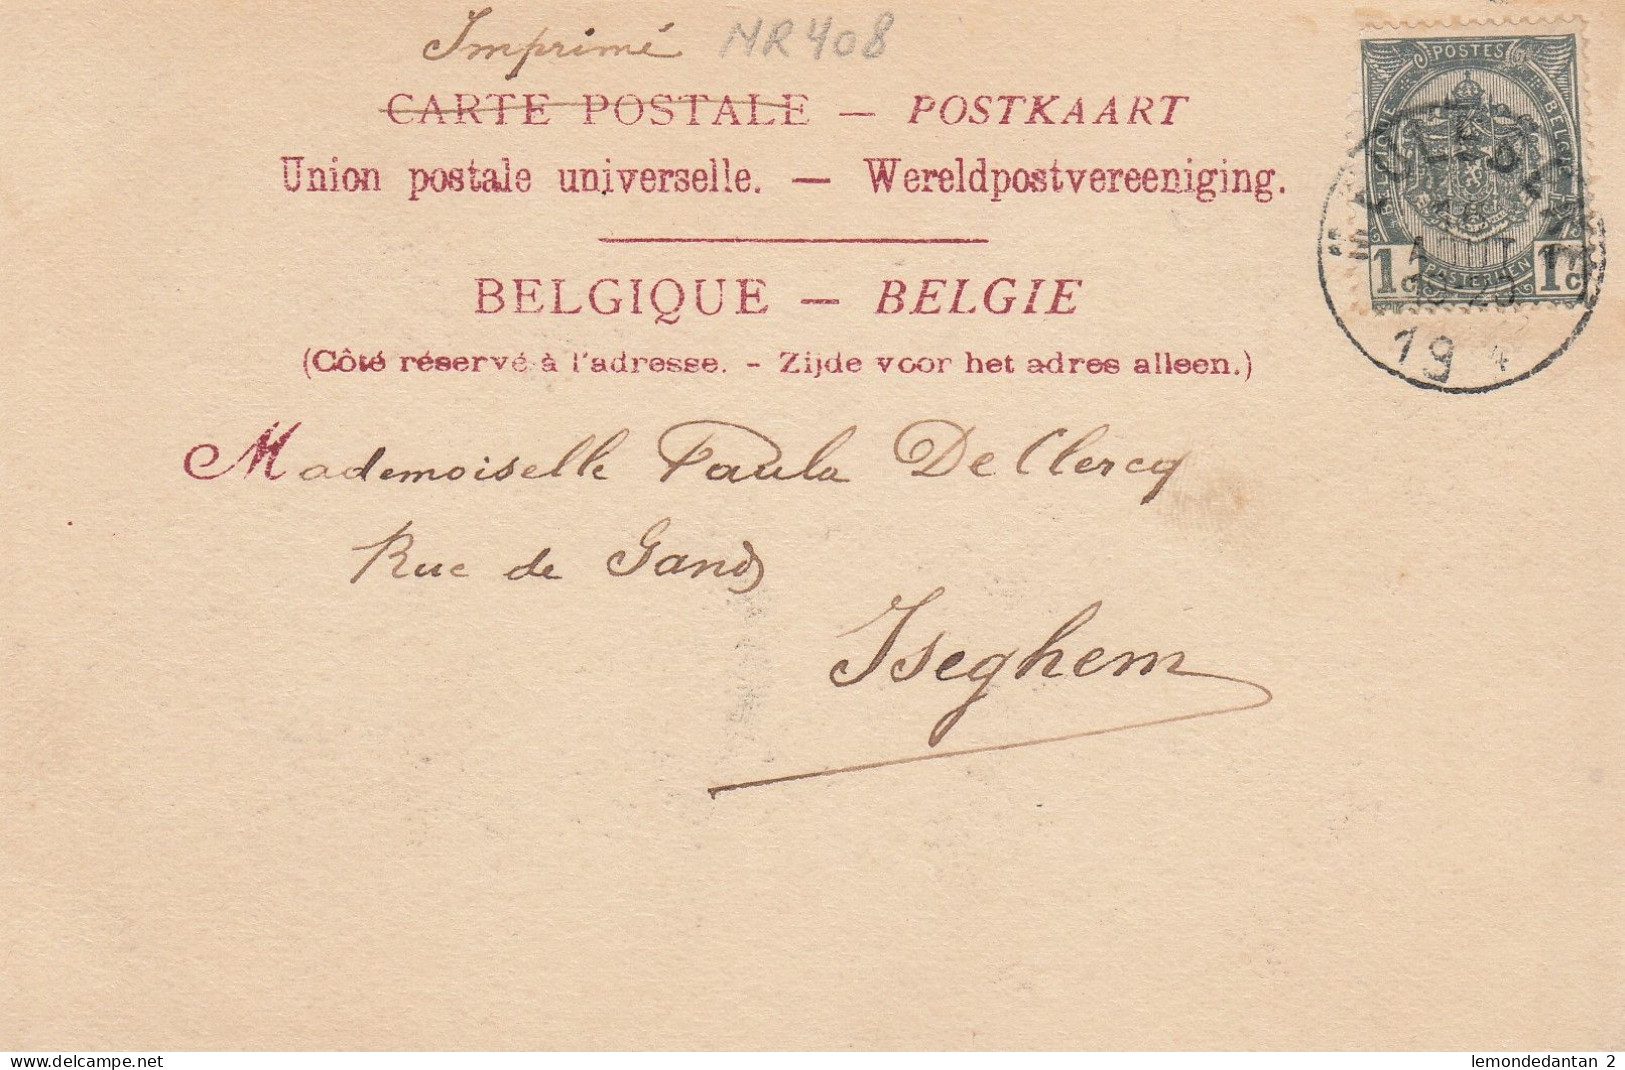 Imprimé NR 408
CARTE POSTALE — POSTKAART
Union postale universelle. — Wereldpostvereeniging.
BELGIQUE — BELGIE
(Côté réservé à l'adresse. - Zijde voor het adres alleen.)
Mademoiselle Paula De Clercq
Rue de Gand
Iseghem
POSTES
BELGIQUE BELGIË
POSTERIJEN
1c 1c
19 4
www.delcampe.net
lemondedantan 2